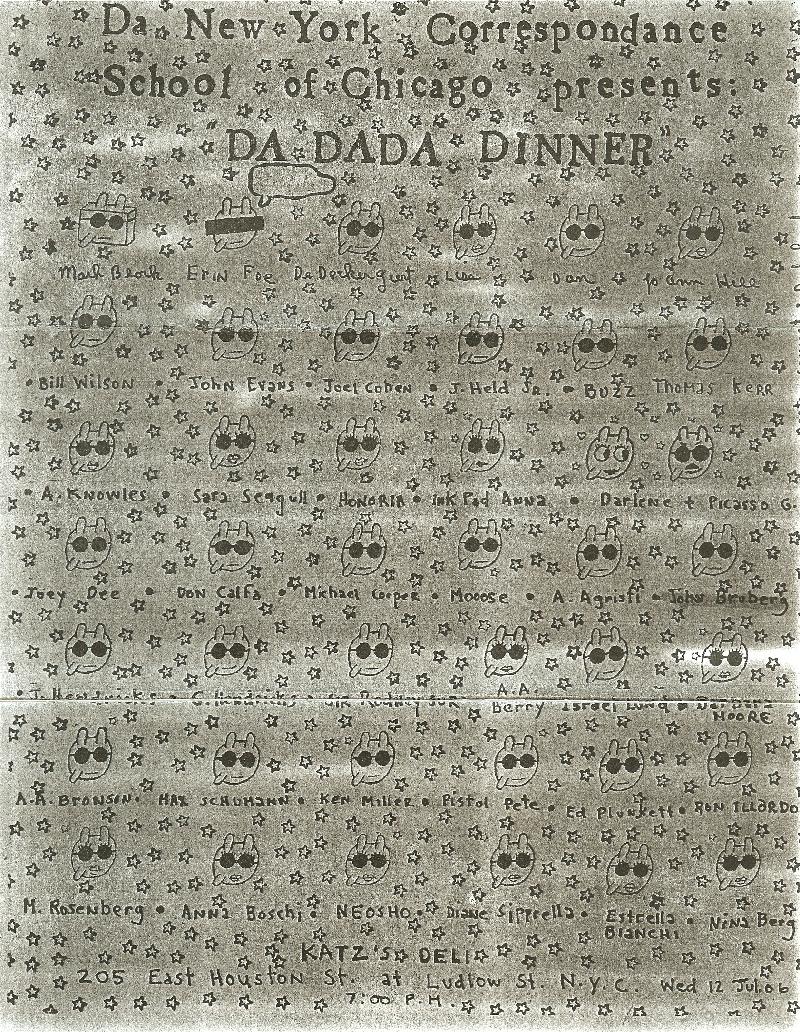 Da New York Correspondance
School of Chicago presents:
"DA DADA DINNER"
Mark Bloch ERIN Foe Da Luda Dan Jo Ann Hill
• Bill Wilson • John Evans • Joel Cohen • J. Held Jr. • BUZZ Thomas Kerr
• A. Knowles • Sara Seagull • HONORIA • Ink Pad ANNA • Darlene + Picasso G.
• Joey Dee • DON Calfa • Michael Cooper • Mooose • A. Agristi • John
• J. Hendricks • G. Hendricks • A.A. Berry Israel • Barbara MOORE
A.A. BRONSON • SCHUMANN • Ken Miller • Pistol Pete • Ed Plunkett • RON ILLARDO
M. Rosenberg • ANNA Boschi • NEOSHO • Diane Sipprella • Estrella BIANCHI • Nina Berg
KATZ'S DELI
205 East Houston St. at Ludlow St. N.Y.C. Wed 12 Jul. 06
7:00 P.M.